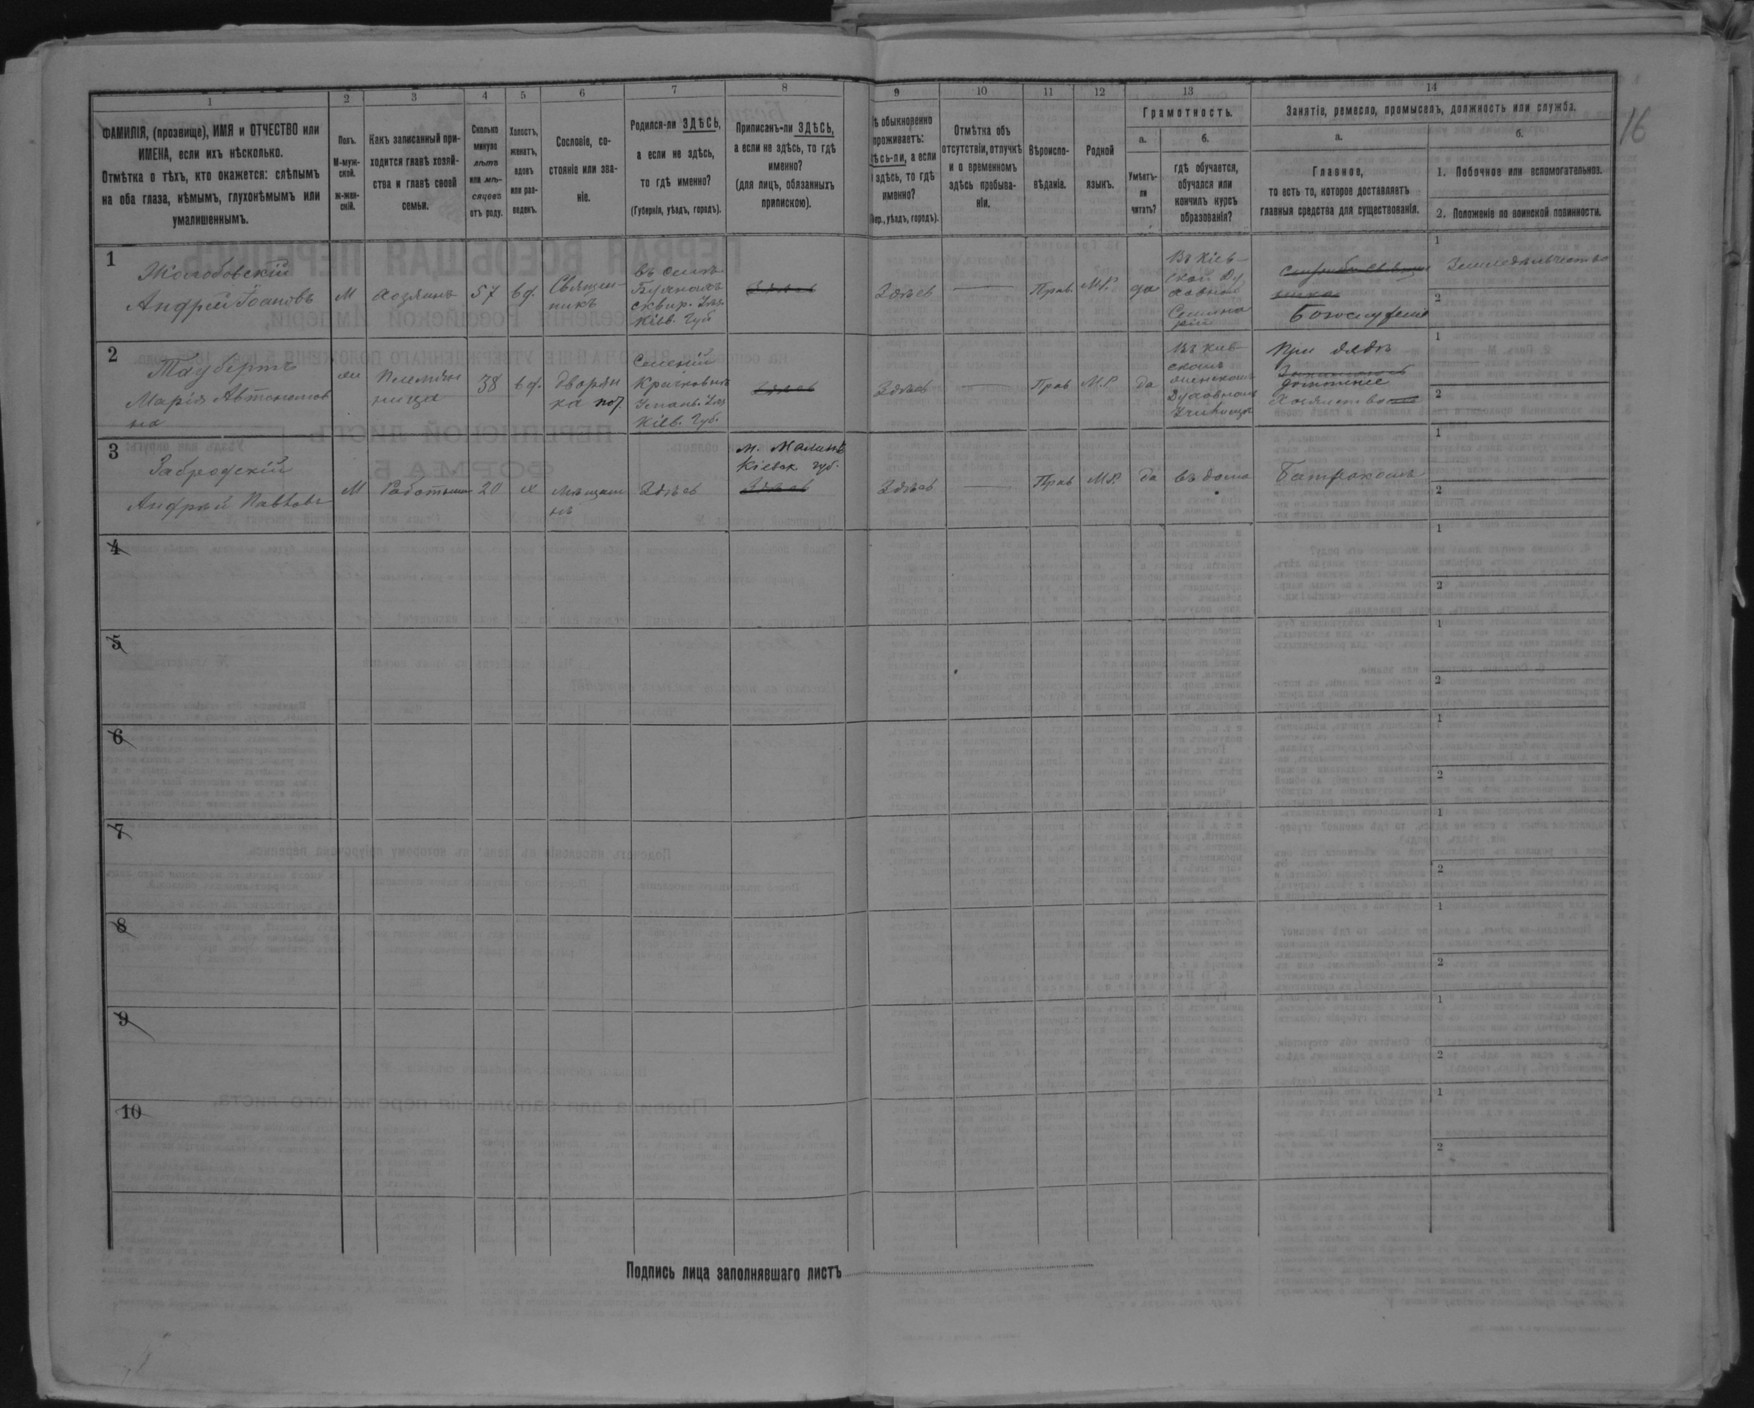 16
1
2
3
4
5
6
7
8
9
10
11
12
13
14
ФАМИЛІЯ, (прозвище), ИМЯ и ОТЧЕСТВО или
ИМЕНА, если ихъ нѣсколько.
Отмѣтка о тѣхъ, кто окажется: слѣпымъ
на оба глаза, нѣмымъ, глухонѣмымъ или
умалишеннымъ.
Полъ.
М-муж-
ской.
Ж-жен-
скій.
Какъ записанный при-
ходится главѣ хозяй-
ства и главѣ своей
семьи.
Сколько
минуло
лѣтъ
или мѣ-
сяцевъ
отъ роду.
Холостъ,
женатъ,
вдовъ
или раз-
веденъ.
Сословіе, со-
стояніе или зва-
ніе.
Родился-ли ЗДѢСЬ,
а если не здѣсь,
то гдѣ именно?
(Губернія, уѣздъ, городъ).
Приписанъ-ли ЗДѢСЬ,
а если не здѣсь, то гдѣ
именно?
(для лицъ, обязанныхъ
припискою).
ѣ обыкновенно
проживаетъ:
ѣсь-ли, а если
здѣсь, то гдѣ
именно?
уѣздъ, городъ).
Отмѣтка объ
отсутствіи, отлучкѣ
и о временномъ
здѣсь пребыва-
ніи.
Вѣроиспо-
вѣданіе.
Родной
языкъ.
Грамотность.
а.
Умѣетъ-
ли
читать?
б.
гдѣ обучается,
обучался или
кончилъ курсъ
образованія?
Занятіе, ремесло, промыселъ, должность или служба.
а.
Главное,
то есть то, которое доставляетъ
главныя средства для существованія.
б.
1. Побочное или вспомогательное.
2. Положеніе по воинской повинности.
1
Жолобовскій
Андрей Іоановъ
М
Хозяинъ
57
вд.
Священ-
никъ
въ селѣ
сквир. Уѣз.
Кіев. Губ
Здѣсь
Здѣсь
Прав
М.Р.
да
Въ Кіев-
ской Ду
ховной
Семина
ріи
Богослуженіе
1
Земледѣльчество
2
2
Таубертъ
Марія Автономов
на
Племян
ница
38
вд.
Дворян
ка пот
Кіев. Губ.
Здѣсь
Здѣсь
Прав
М.Р.
да
Въ Кіев
скомъ
женскомъ
Духовномъ
Училищѣ
При дядѣ
домашнее
Хозяйство
1
2
3
Забродскій
Андрей Павловъ
М
Работникъ
20
х
Мѣщан
нъ
Здѣсь
м. Малинъ
Кіевск губ.
Здѣсь
Здѣсь
Прав
М.Р.
да
въ дома
Батракомъ
1
2
4
1
2
5
1
2
6
1
2
7
1
2
8
1
2
9
1
2
10
1
2
Подпись лица заполнявшаго листъ